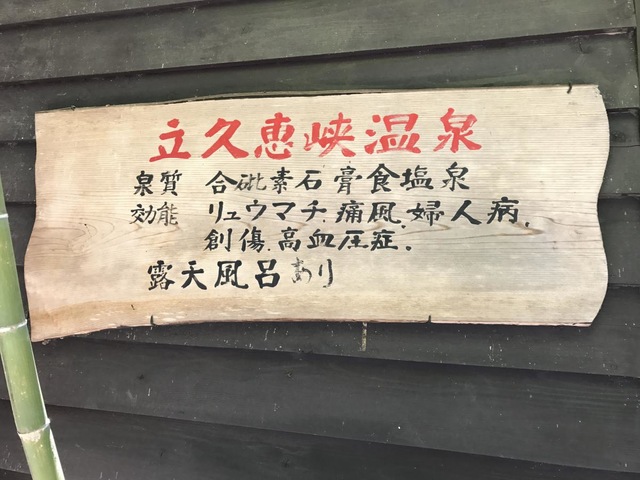 立久恵峡温泉
泉質 合砒素石膏食塩泉
効能 リュウマチ.痛風.婦人病.
創傷.高血圧症.
露天風呂あり